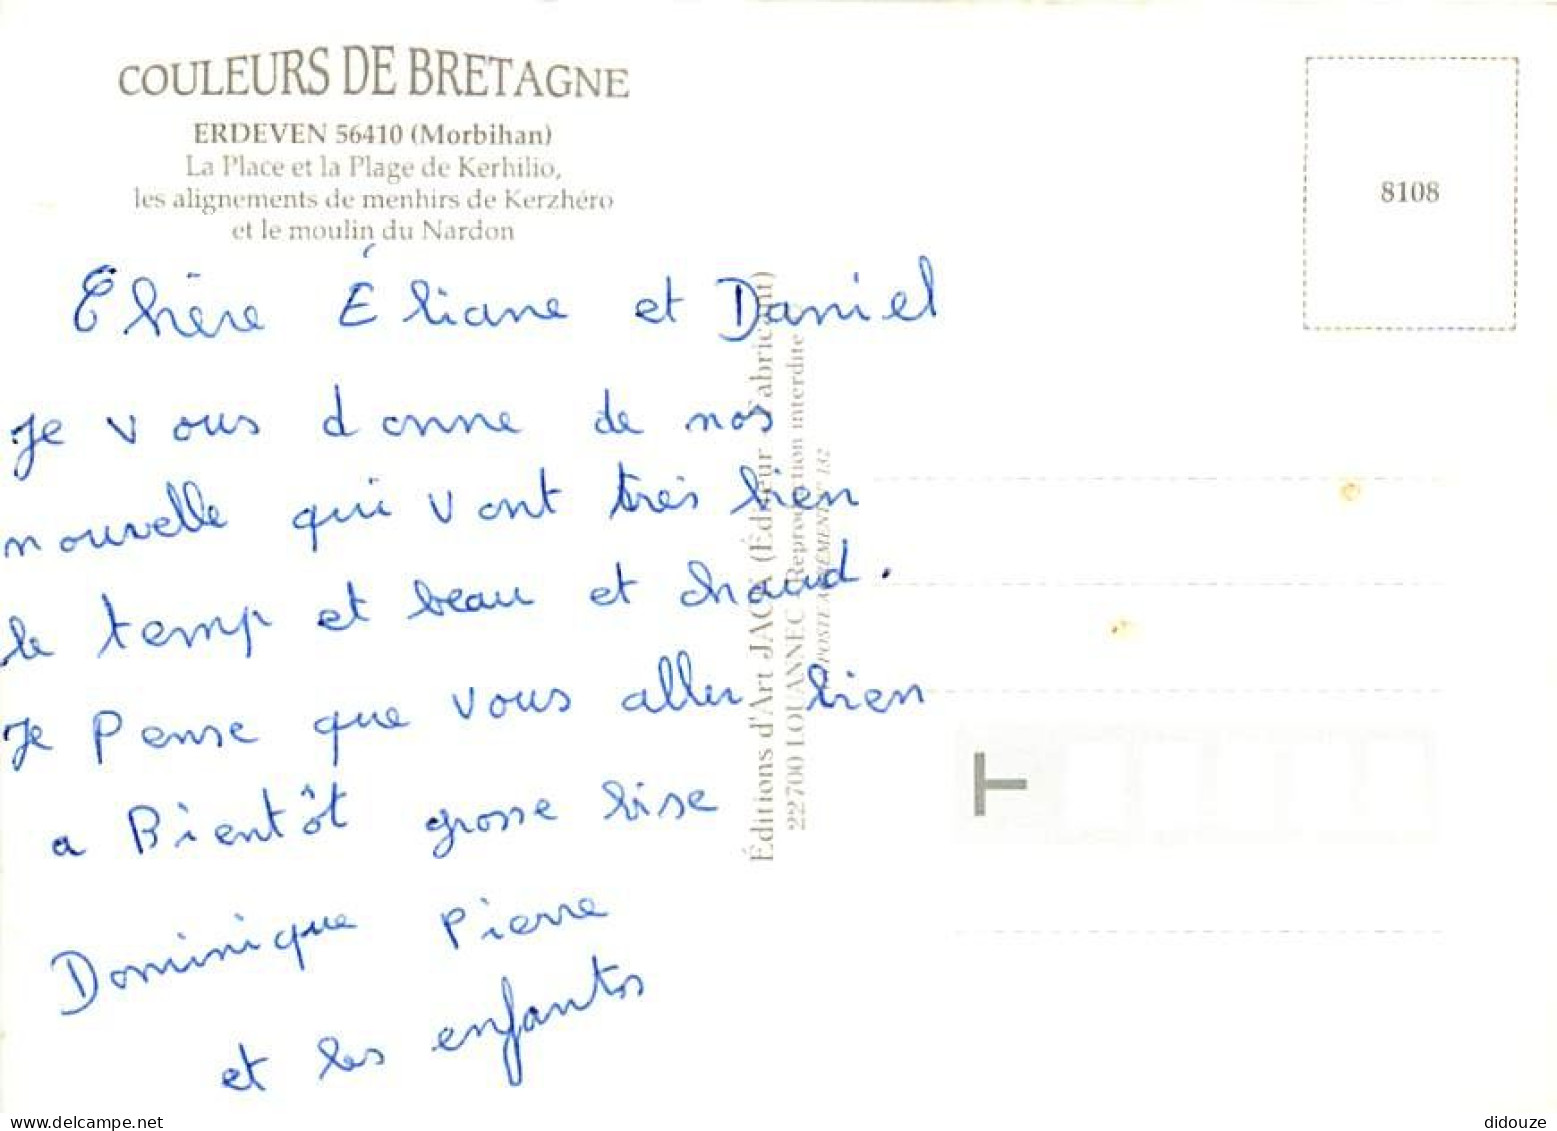 COULEURS DE BRETAGNE
ERDEVEN 56410 (Morbihan)
La Place et la Plage de Kerhilio,
les alignements de menhirs de Kerzhéro
et le moulin du Nardon
8108
Chère Éliane et Daniel
Je vous donne de nos
nouvelle qui vont très bien
le temp et beau et chaud.
Je Pense que vous aller bien
a Bientôt grosse bise
Dominique Pierre
et les enfants
Éditions d'Art JACK (Éditeur Fabricant)
22700 LOUANNEC Reproduction interdite
POSTE AGRÉMENT N° 132
T
delcampe.net
didouze